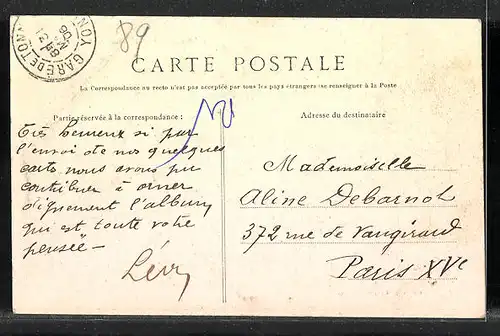 89
GARE DE TON
CARTE POSTALE
La Correspondance au recto n'est pas acceptée par tous les pays étrangers (se renseigner à la Poste
Partie réservée à la correspondance :
Très heureux si par
l'envoi de nos quelques
cartes nous avons pu
contribuer à orner
dignement l'album
qui est toute votre
pensée –
Lévy
Adresse du destinataire
Mademoiselle
Aline Debarnot
372 rue de Vaugirard
Paris XVe